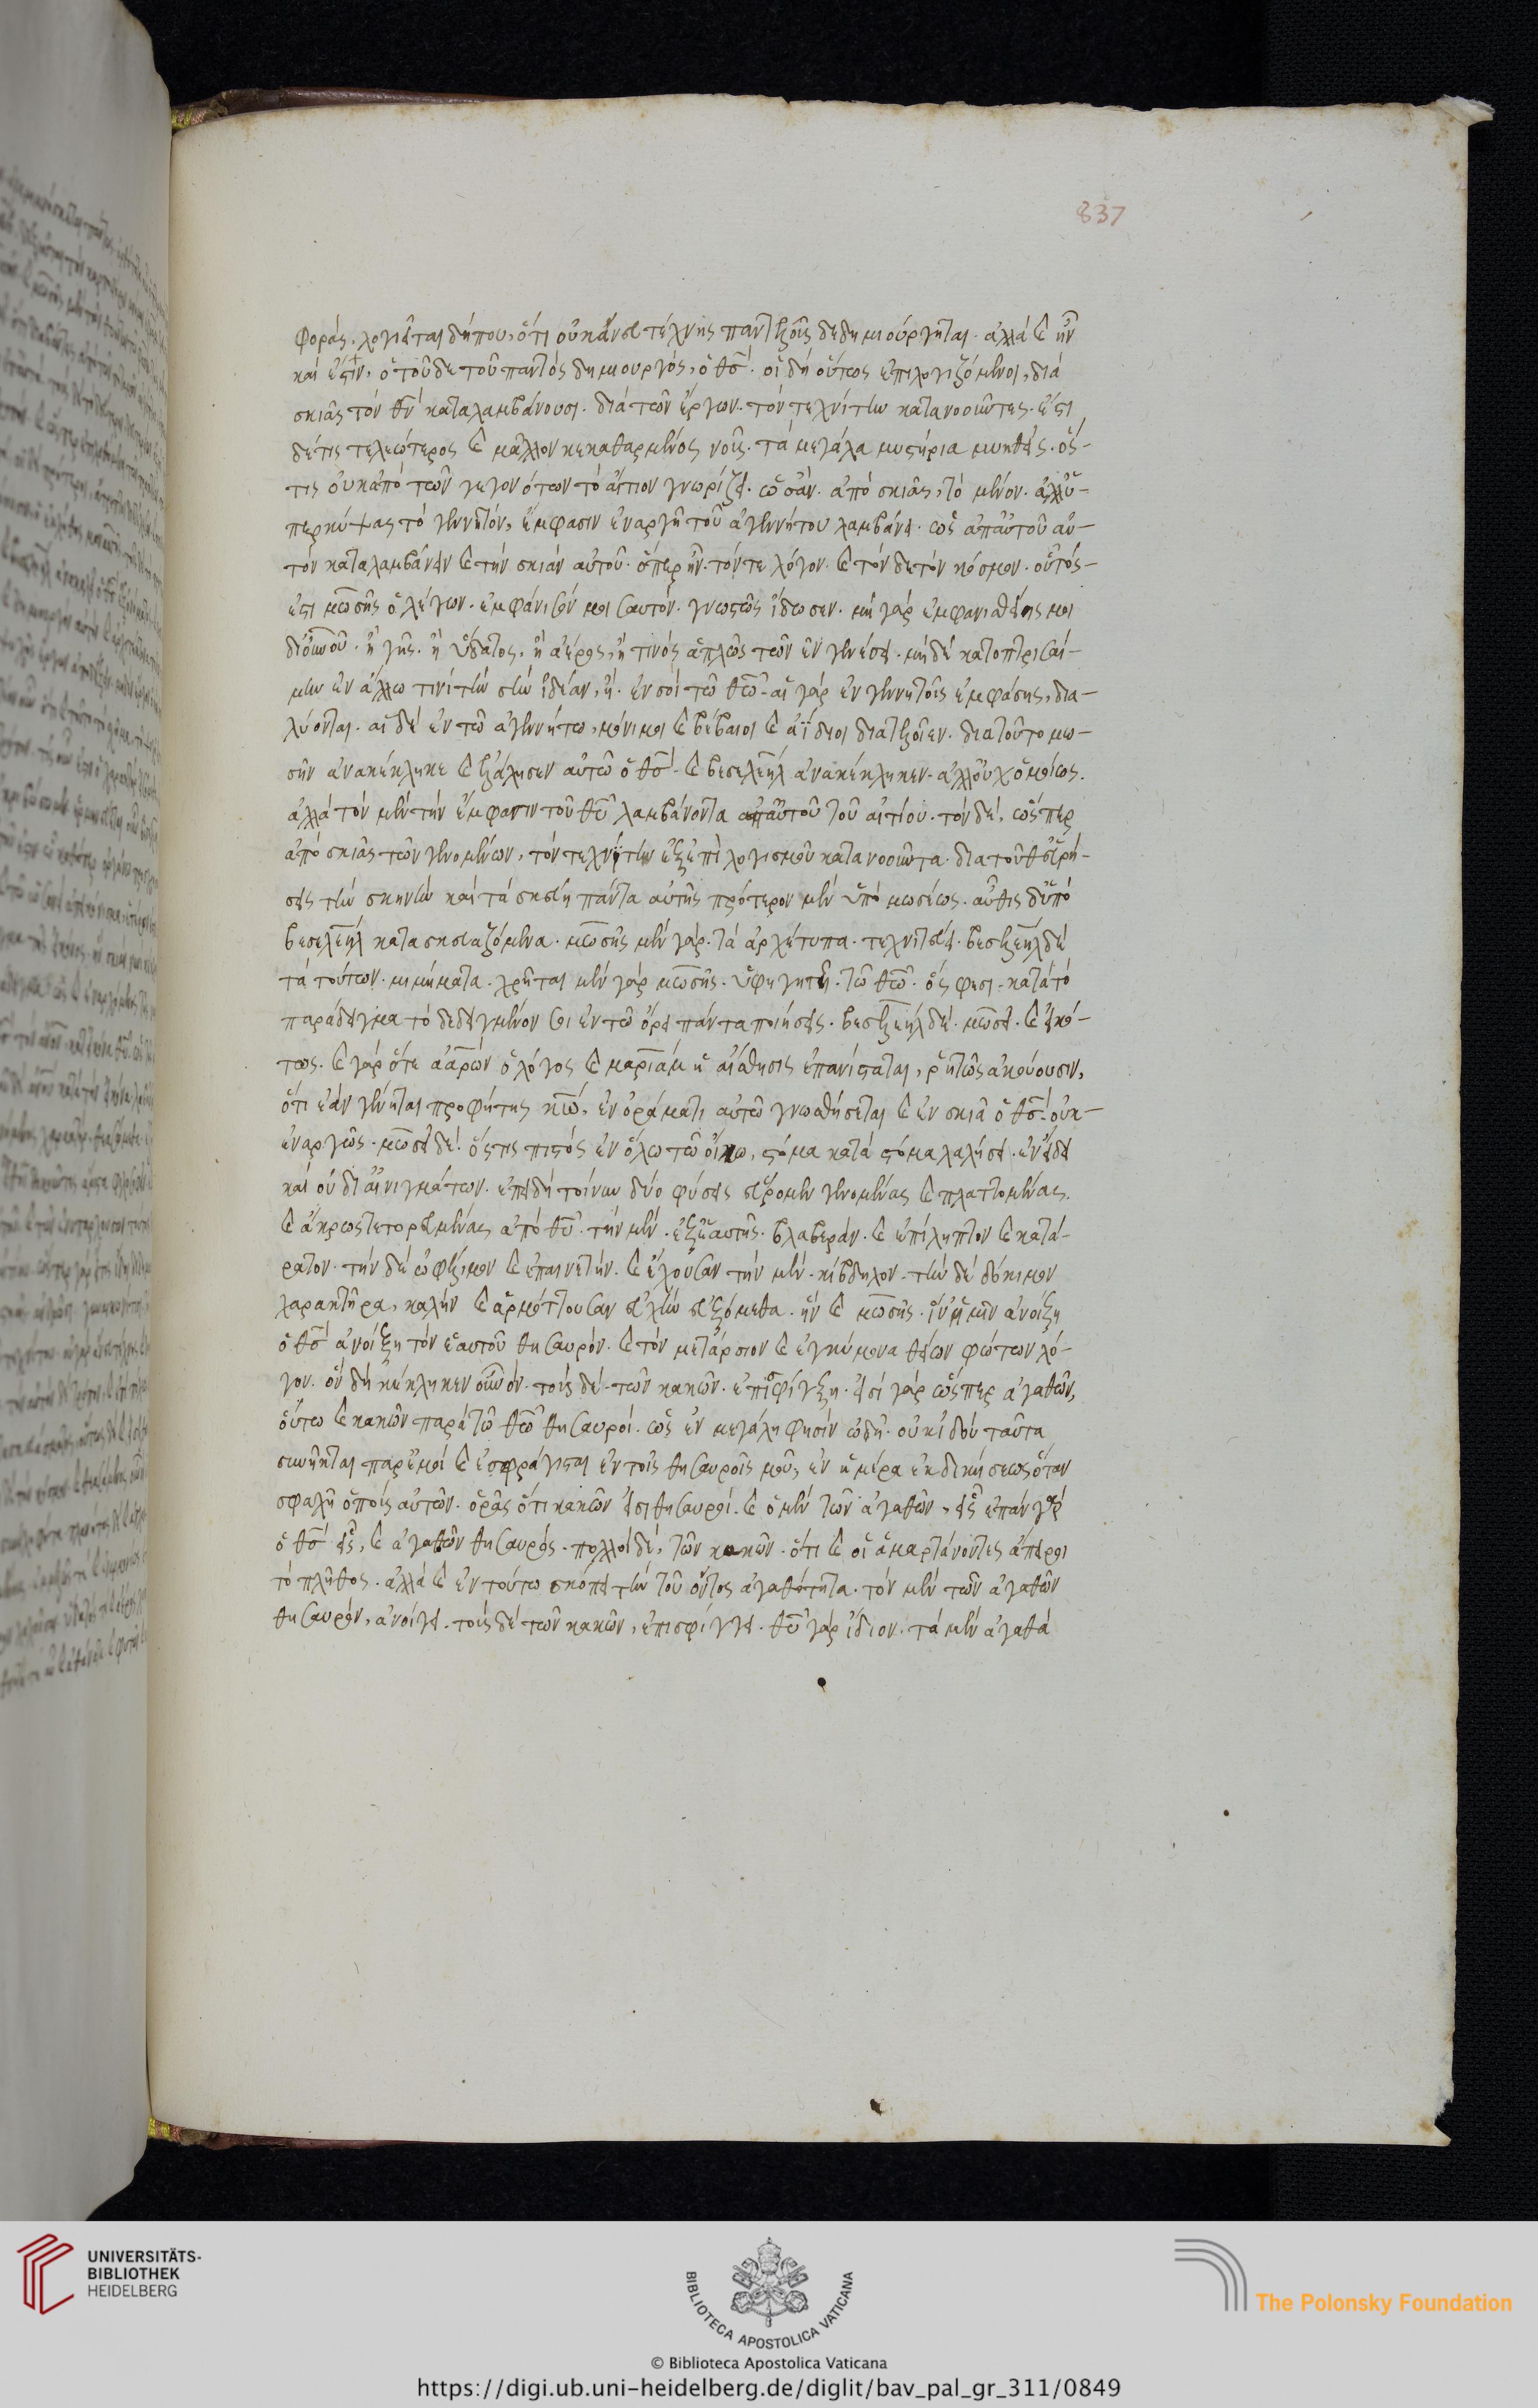 837
φοράς, λογιεῖται δήπου, ὅτι οὐκ ἄνευ τέχνης παντελοῦς δεδημιούργηται. ἀλλὰ καὶ ἦν
καὶ ἔστιν, ὁ τοῦδε τοῦ παντὸς δημιουργός, ὁ θς. οἱ δὴ οὕτως ἐπιλογιζόμενοι, διὰ
σκιᾶς τὸν θν καταλαμβάνουσι. διὰ τῶν ἔργων. τὸν τεχνίτην κατανοοῦντες. ἔστι
δέ τις τελεώτερος καὶ μᾶλλον κεκαθαρμένος νοῦς. τὰ μεγάλα μυστήρια μυηθείς. ὅσ-
τις οὐκ ἀπὸ τῶν γεγονότων τὸ αἴτιον γνωρίζει. ὡς ἂν. ἀπὸ σκιᾶς, τὸ μένον. ἀλλ' ὑ-
περκύψας τὸ γεννητόν, ἔμφασιν ἐναργῆ τοῦ ἀγεννήτου λαμβάνει. ὡς ἀπ' αὐτοῦ αὐ-
τὸν καταλαμβάνειν καὶ τὴν σκιὰν αὐτοῦ. ὅπερ ἦν. τόν τε λόγον. καὶ τόν δε τὸν κόσμον. οὗτός-
ἐστι μωσῆς ὁ λέγων. ἐμφάνισόν μοι σαυτόν. γνωστῶς ἴδω σεν. μὴ γὰρ ἐμφανισθείης μοι
δι' οὐνοῦ. ἢ γῆς. ἢ ὕδατος, ἢ ἀέρος, ἤ τινος ἁπλῶς τῶν ἐν γενέσει. μηδὲ κατοπτρισαί-
μην ἐν ἄλλω τινὶ τὴν σὴν ἰδέαν, ἢ. ἐν σοὶ τῶ θεῶ. αἱ γὰρ ἐν γεννητοῖς ἐμφάσεις, δια-
λύονται. αἱ δὲ ἐν τῶ ἀγεννήτω, μόνιμοι καὶ βέβαιοι καὶ ἀΐδιοι διατελοῖεν. διατοῦτο μω-
σῆν ἀνακέκληκε καὶ ἐλάλησεν αὐτῶ ὁ θς. καὶ βεσελεὴλ ἀνακέκληκεν. ἀλλ' οὐχ ὁμοίως.
ἀλλὰ τὸν μὲν τὴν ἔμφασιν τοῦ θυ λαμβάνοντα ἀπ' αὐτοῦ τοῦ αἰτίου. τὸν δὲ, ὥσπερ
ἀπὸ σκιᾶς τῶν γενομένων, τὸν τεχνίτην ἐξ ἐπὶ λογισμοῦ κατανοοῦντα. διατοῦθ' εὑρή-
σεις τὴν σκηνὴν καὶ τὰ σκεύη πάντα αὐτῆς πρότερον μὲν ὑπὸ μωσέως. αὖθις δ' ὑπὸ
βεσελεὴλ κατασκευαζόμενα. μωσῆς μὲν γὰρ. τὰ ἀρχέτυπα. τεχνιτεύει. βεσελεὴλ δὲ
τὰ τούτων. μιμήματα. χρῆται μὲν γὰρ μωσῆς. ὑφηγητῆ. τῶ θεῶ. ὅς φησι. κατὰ τὸ
παράδειγμα τὸ δεδειγμένον σοι ἐν τῶ ὄρει πάντα ποιήσεις. βεσελεὴλ δὲ. μωσεῖ. καὶ εἰκό-
τως. καὶ γὰρ ὅτε ἀαρὼν ὁ λόγος καὶ μαριὰμ ἡ αἴσθησις ἐπανίσταται, ῥητῶς ἀκούουσιν,
ὅτι ἐὰν γένηται προφήτης κω, ἐν ὁράματι αὐτῶ γνωσθήσεται καὶ ἐν σκιᾶ ὁ θς. οὐκ-
ἐναργῶς. μωσεῖ δὲ. ὅστις πιστὸς ἐν ὅλω τῶ οἴκω, στόμα κατὰ στόμα λαλήσει. ἐν εἴδει
καὶ οὐ δι' αἰνιγμάτων. ἐπειδὴ τοίνυν δύο φύσεις εὕρομεν γενομένας καὶ πλαττομένας.
καὶ ἄκρως τετορευμένας ἀπὸ θυ. τὴν μὲν. ἐξ ἑαυτῆς. βλαβερὰν. καὶ ἐπίληπτον καὶ κατά-
ρατον. τὴν δὲ ὠφέλιμον καὶ ἐπαινετήν. καὶ ἔχουσαν τὴν μὲν. κίβδηλον. τὴν δὲ δόκιμον
χαρακτῆρα, καλὴν καὶ ἁρμόττουσαν εὐχὴν εὐξόμεθα. ἣν καὶ μωσῆς. ἵν' ἡμῖν ἀνοίξη
ὁ θς ἀνοίξη τὸν ἑαυτοῦ θησαυρόν. καὶ τὸν μετάρσιον καὶ ἐγκύμονα θείων φώτων λό-
γον. ὃν δὴ κέκληκεν οὐνόν. τοὺς δὲ τῶν κακῶν. ἐπισφίγξη. εἰσὶ γὰρ ὥσπερ ἀγαθῶν,
οὕτω καὶ κακῶν παρὰ τῶ θεῶ θησαυροί. ὡς ἐν μεγάλη φησὶν ὠδῆ. οὐκ ἰδοὺ ταῦτα
συνῆκται παρ' ἐμοὶ καὶ ἐσφράγισται ἐν τοῖς θησαυροῖς μου, ἐν ἡμέρα ἐκδικήσεως ὅταν
σφαλῆ ὁ ποὺς αὐτῶν. ὁρᾶς ὅτι κακῶν εἰσι θησαυροί. καὶ ὁ μὲν τῶν ἀγαθῶν, εἷς ἐπὰν γὰρ
ὁ θς εἷς, καὶ ἀγαθῶν θησαυρός. πολλοὶ δὲ, τῶν κακῶν. ὅτι καὶ οἱ ἁμαρτάνοντες ἄπειροι
τὸ πλῆθος. ἀλλὰ καὶ ἐν τούτω σκόπει τὴν τοῦ ὄντος ἀγαθότητα. τὸν μὲν τῶν ἀγαθῶν
θησαυρὸν, ἀνοίγει. τοὺς δὲ τῶν κακῶν, ἐπισφίγγει. θυ γὰρ ἴδιον. τὰ μὲν ἀγαθὰ
UNIVERSITÄTS-
BIBLIOTHEK
HEIDELBERG
BIBLIOTECA APOSTOLICA VATICANA
© Biblioteca Apostolica Vaticana
The Polonsky Foundation
https://digi.ub.uni-heidelberg.de/diglit/bav_pal_gr_311/0849